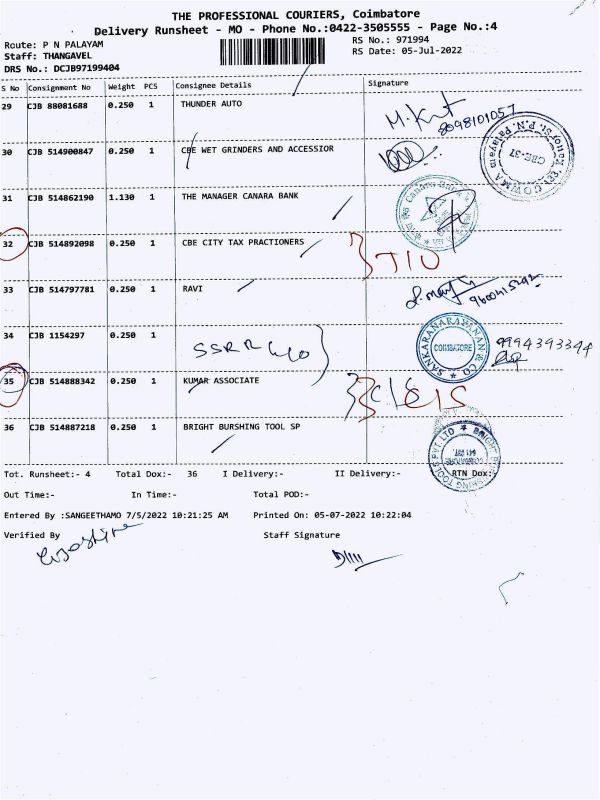 THE PROFESSIONAL COURIERS, Coimbatore
Delivery Runsheet - MO - Phone No.:0422-3505555 - Page No.:4
Route: P N PALAYAM
RS No.: 971994
Staff: THANGAVEL
RS Date: 05-Jul-2022
DRS No.: DCJB97199404
S No Consignment No Weight PCS Consignee Details Signature
29 CJB 88081688 0.250 1 THUNDER AUTO
8098101057
30 CJB 514900847 0.250 1 CBE WET GRINDERS AND ACCESSIOR
CBE-37
31 CJB 514862190 1.130 1 THE MANAGER CANARA BANK
32 CJB 514892098 0.250 1 CBE CITY TAX PRACTIONERS
33 CJB 514797781 0.250 1 RAVI
34 CJB 1154297 0.250 1
SANKARANARAYANAN & CO
COIMBATORE
9994393344
35 CJB 514888342 0.250 1 KUMAR ASSOCIATE
36 CJB 514887218 0.250 1 BRIGHT BURSHING TOOL SP
Tot. Runsheet:- 4 Total Dox:- 36 I Delivery:- II Delivery:- RTN Dox:
Out Time:- In Time:- Total POD:-
Entered By :SANGEETHAMO 7/5/2022 10:21:25 AM Printed On: 05-07-2022 10:22:04
Verified By Staff Signature